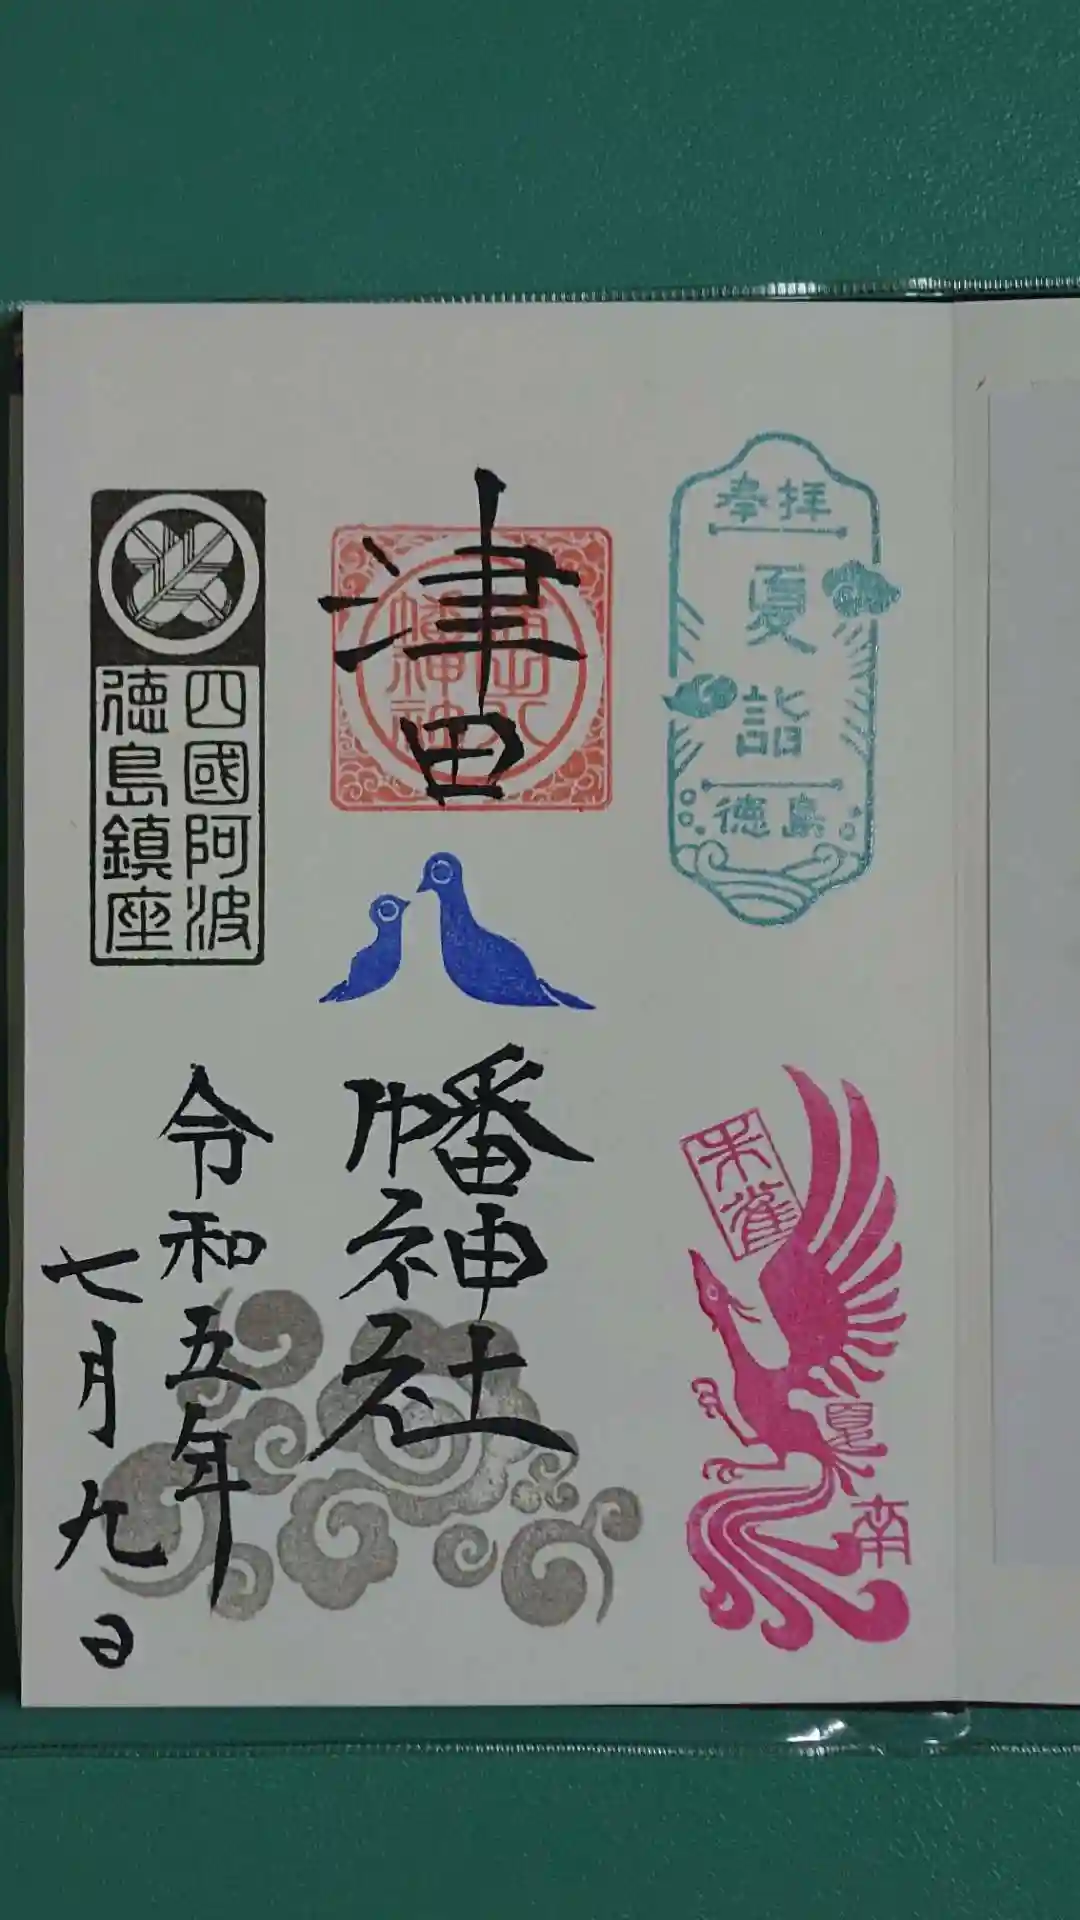 奉拝
夏詣
徳島
朱雀
夏
南
津田
幡神社
令和五年
七月九日
四國阿波
徳島鎮座